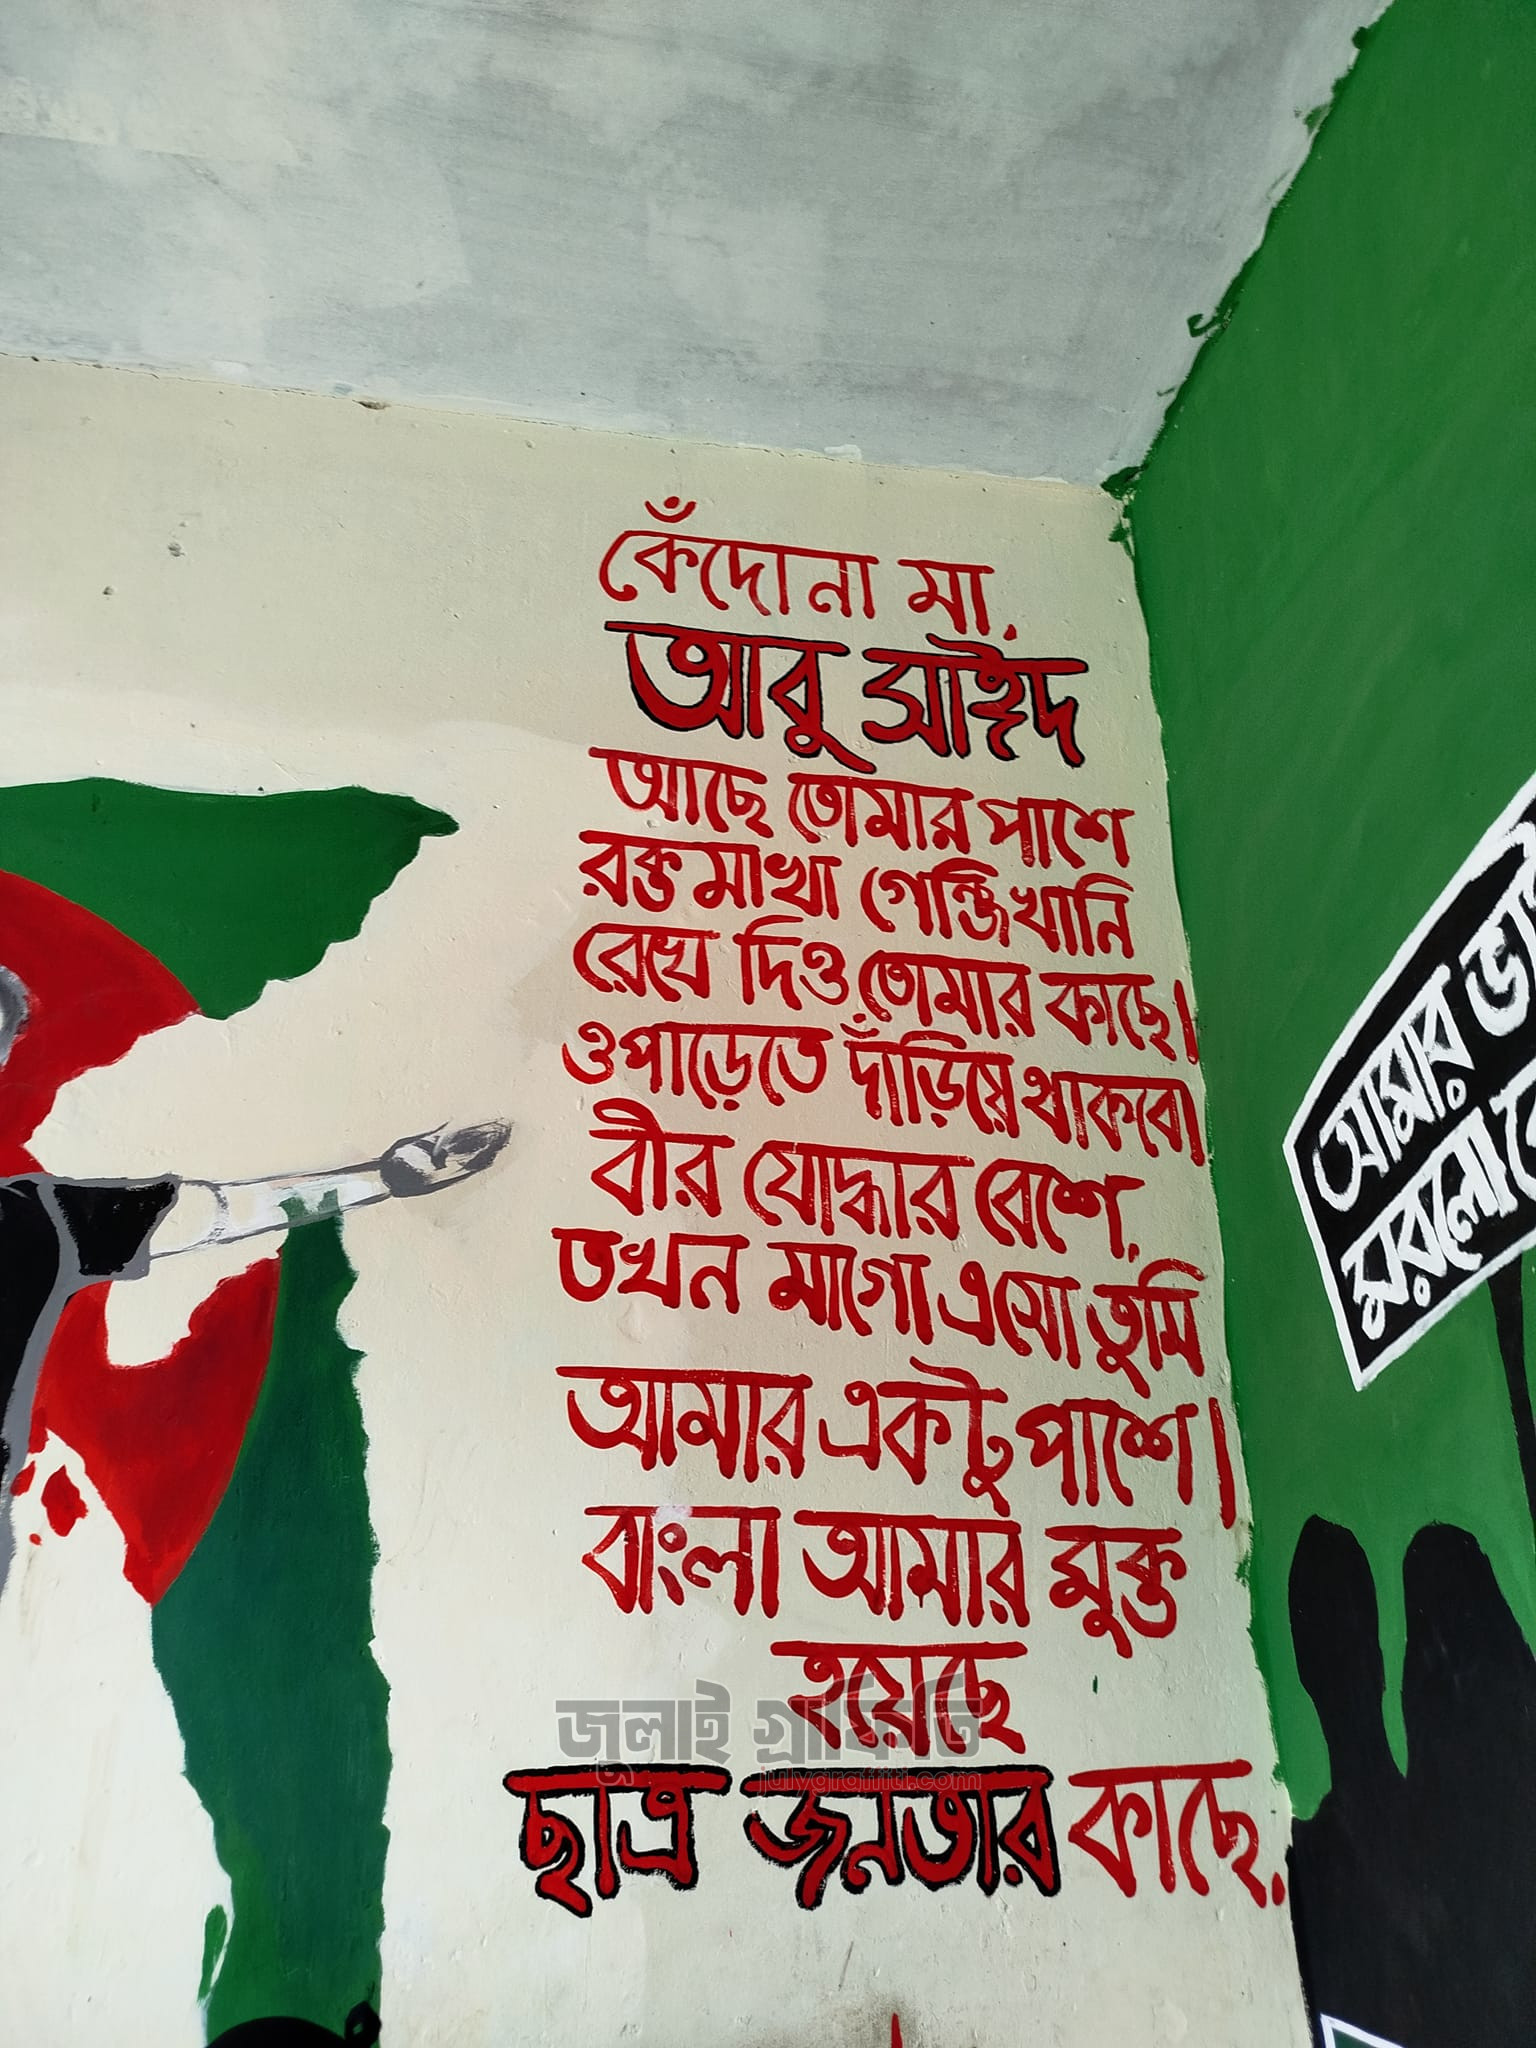 কেঁদোনা মা,
আবু সাঈদ
আছে তোমার পাশে
রক্ত মাখা গেঞ্জিখানি
রেখে দিও তোমার কাছে।
ওপাড়েতে দাঁড়িয়ে থাকবো
বীর যোদ্ধার বেশে,
তখন মাগো এসো তুমি
আমার একটু পাশে।
বাংলা আমার মুক্ত
হয়েছে
ছাত্র জনতার কাছে.
আমার
মরলো
জুলাই গ্রাফিতি
julygraffiti.com